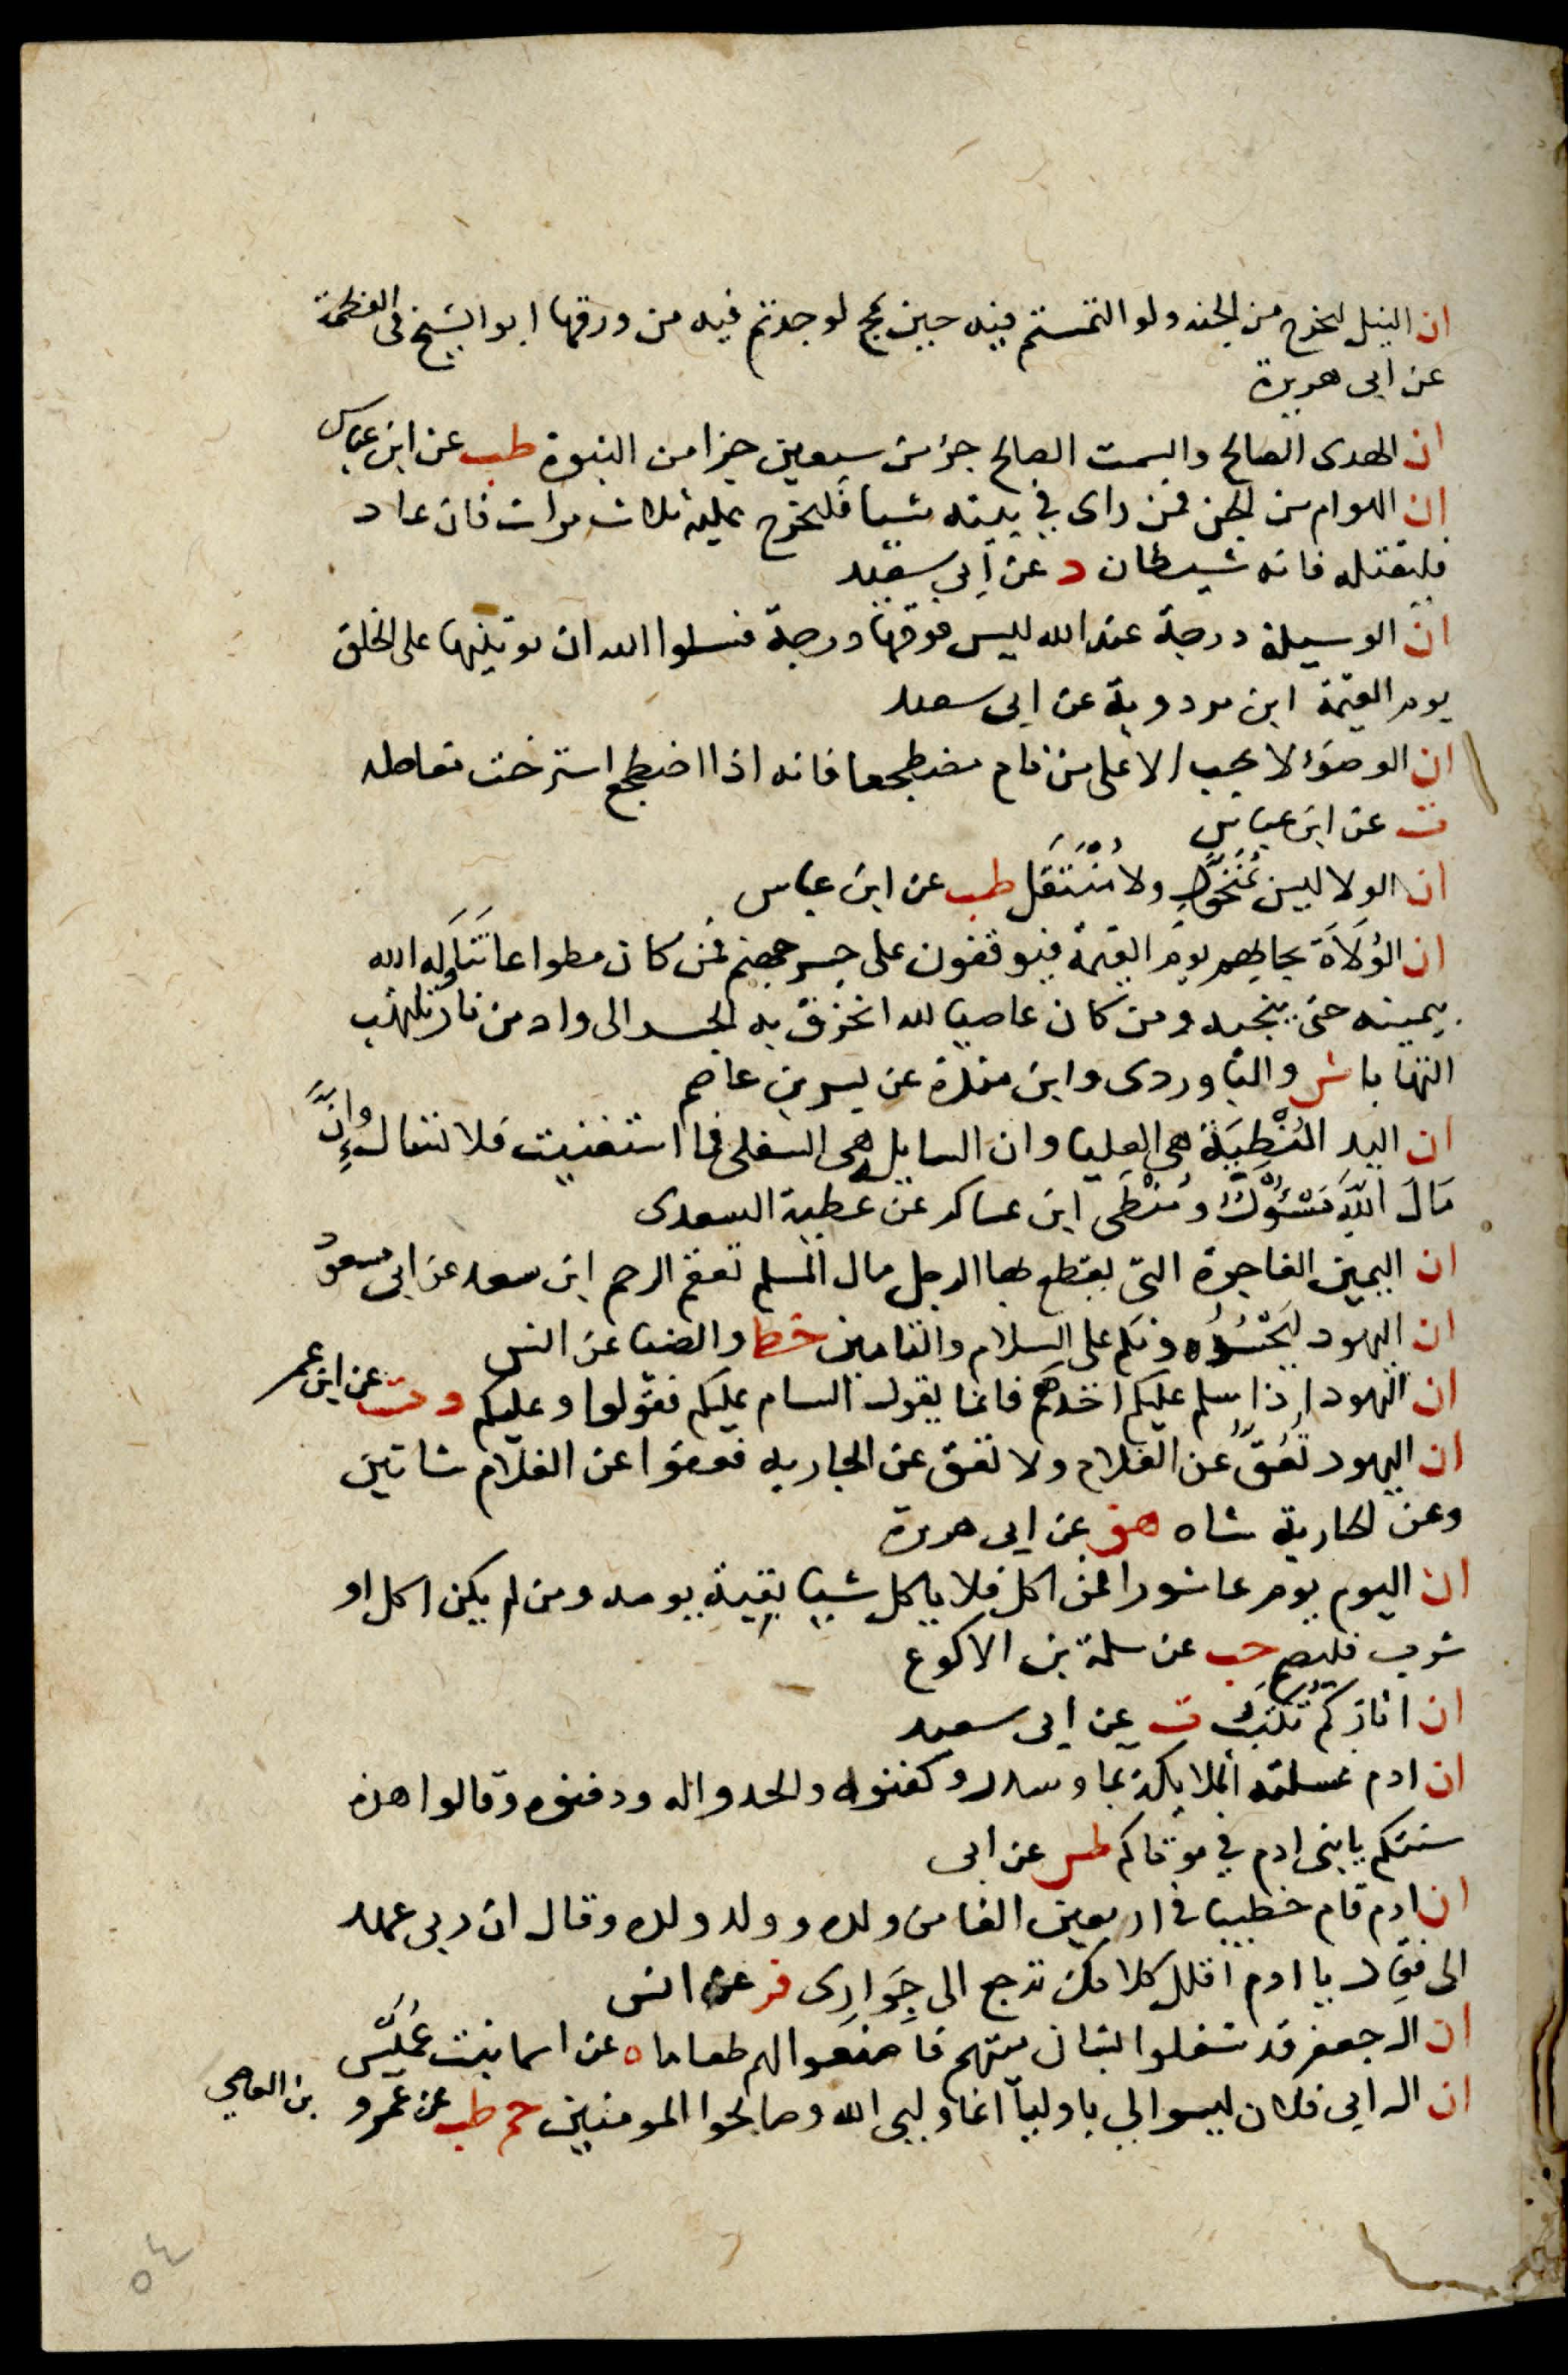 ان النيل ليخرج من الجنه ولو التمستم فيه حين يمج لوجدتم فيه من ورقها ابو الشيخ فى العظمة
عن ابى هريرة
ان الهدى الصالح والسمت الصالح جزء من سبعين جزا من النبوة طب عن ابن عباس
ان الهوام من الجن فمن راى في بيته شيا فليخرج عليه ثلاث مرات فان عاد
فليقتله فانه شيطان د عن ابي سعيد
ان الوسيلة درجة عند الله ليس فوقها درجة فسلوا الله ان يوتينها على الخلق
يوم القيمة ابن مردوية عن ابى سعيد
ان الوضوء لا يجب الا على من نام مضطجعا فانه اذا اضطجع استرخت مفاصله
ت عن ابن عباس
ان الولا ليس بمُتَحَوِّلٍ ولا مُنْتَقِل طب عن ابن عباس
ان الوُلَاةَ يجابهم يوم القيمة فيوقفون على جسر جهنم فمن كان مطواعا تَنَاوَله الله
بيمينه حتى ينجيه ومن كان عاصيا لله انخرق به الجسر الى واد من نار تلتهب
التهابا ش والباوردى وابن مندة عن بسر بن عاصم
ان اليد المُنْطِيَة هى العليا وان السايل هى السفلى فما استغنيت فلا تسال وَإِنَّ
مَالَ اللهِ مَسْئُوْلٌ ومُنْطًى ابن عساكر عن عطية السعدى
ان اليمين الفاجرة التى يقتطع بها الرجل مال المسلم تعقم الرحم ابن سعد عن ابى مسعود
ان اليهود ليَحْسُدُونكم على السلام والتامين خط والضيا عن انس
ان اليهود اذا سلم عليكم احدهم فانما يقول السام عليكم فقولوا وعليكم د ت عن ابن عمر
ان اليهود تَعُقّ عن الغلام ولا تعق عن الجاريه فعقوا عن الغلام شاتين
وعن الجارية شاه هق عن ابى هريرة
ان اليوم يوم عاشورا فمن اكل فلا ياكل شيا بقية يومه ومن لم يكن اكل او
شرب فليصم حب عن سلمة بن الاكوع
ان اثاركم تُكْتَبُ ت عن ابى سعيد
ان ادم غسلته الملايكة بما وسدر وكفنوه ولحدوا له ودفنوه وقالوا هذه
سنتكم يا بنى ادم في موتاكم طس عن ابى
ان ادم قام خطيبا فى اربعين الفا من ولده وولد ولده وقال ان ربى عهد
الى فقال يا ادم اقلل كلامك ترجع الى جِوَارِى فر عن انس
ان ال جعفر قد شغلوا بشان ميتهم فاصنعوا لهم طعاما ه عن اسما بنت عُمَيْس
ان ال ابى فلان ليسوا لي باوليآ انما وليى الله وصالحوا المومنين حم طب عن عمرو بن العاصي
٥٤